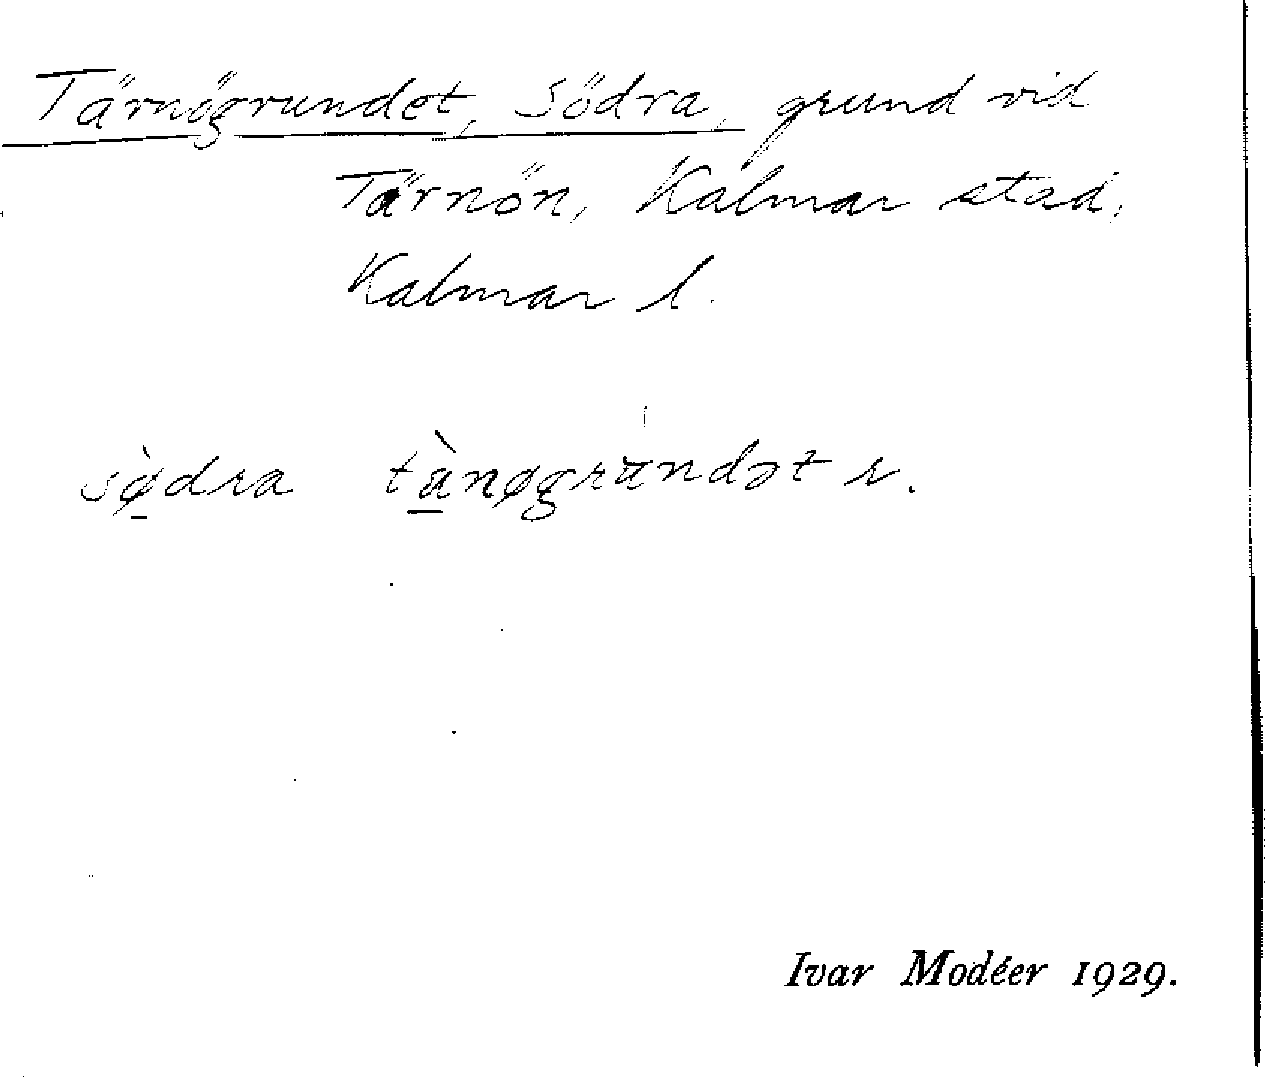 Tärnögrundet, Södra, grund vid
Tärnön, Kalmar stad,
Kalmar l.
sø̀dra tànøgrundət r.
Ivar Modéer 1929.